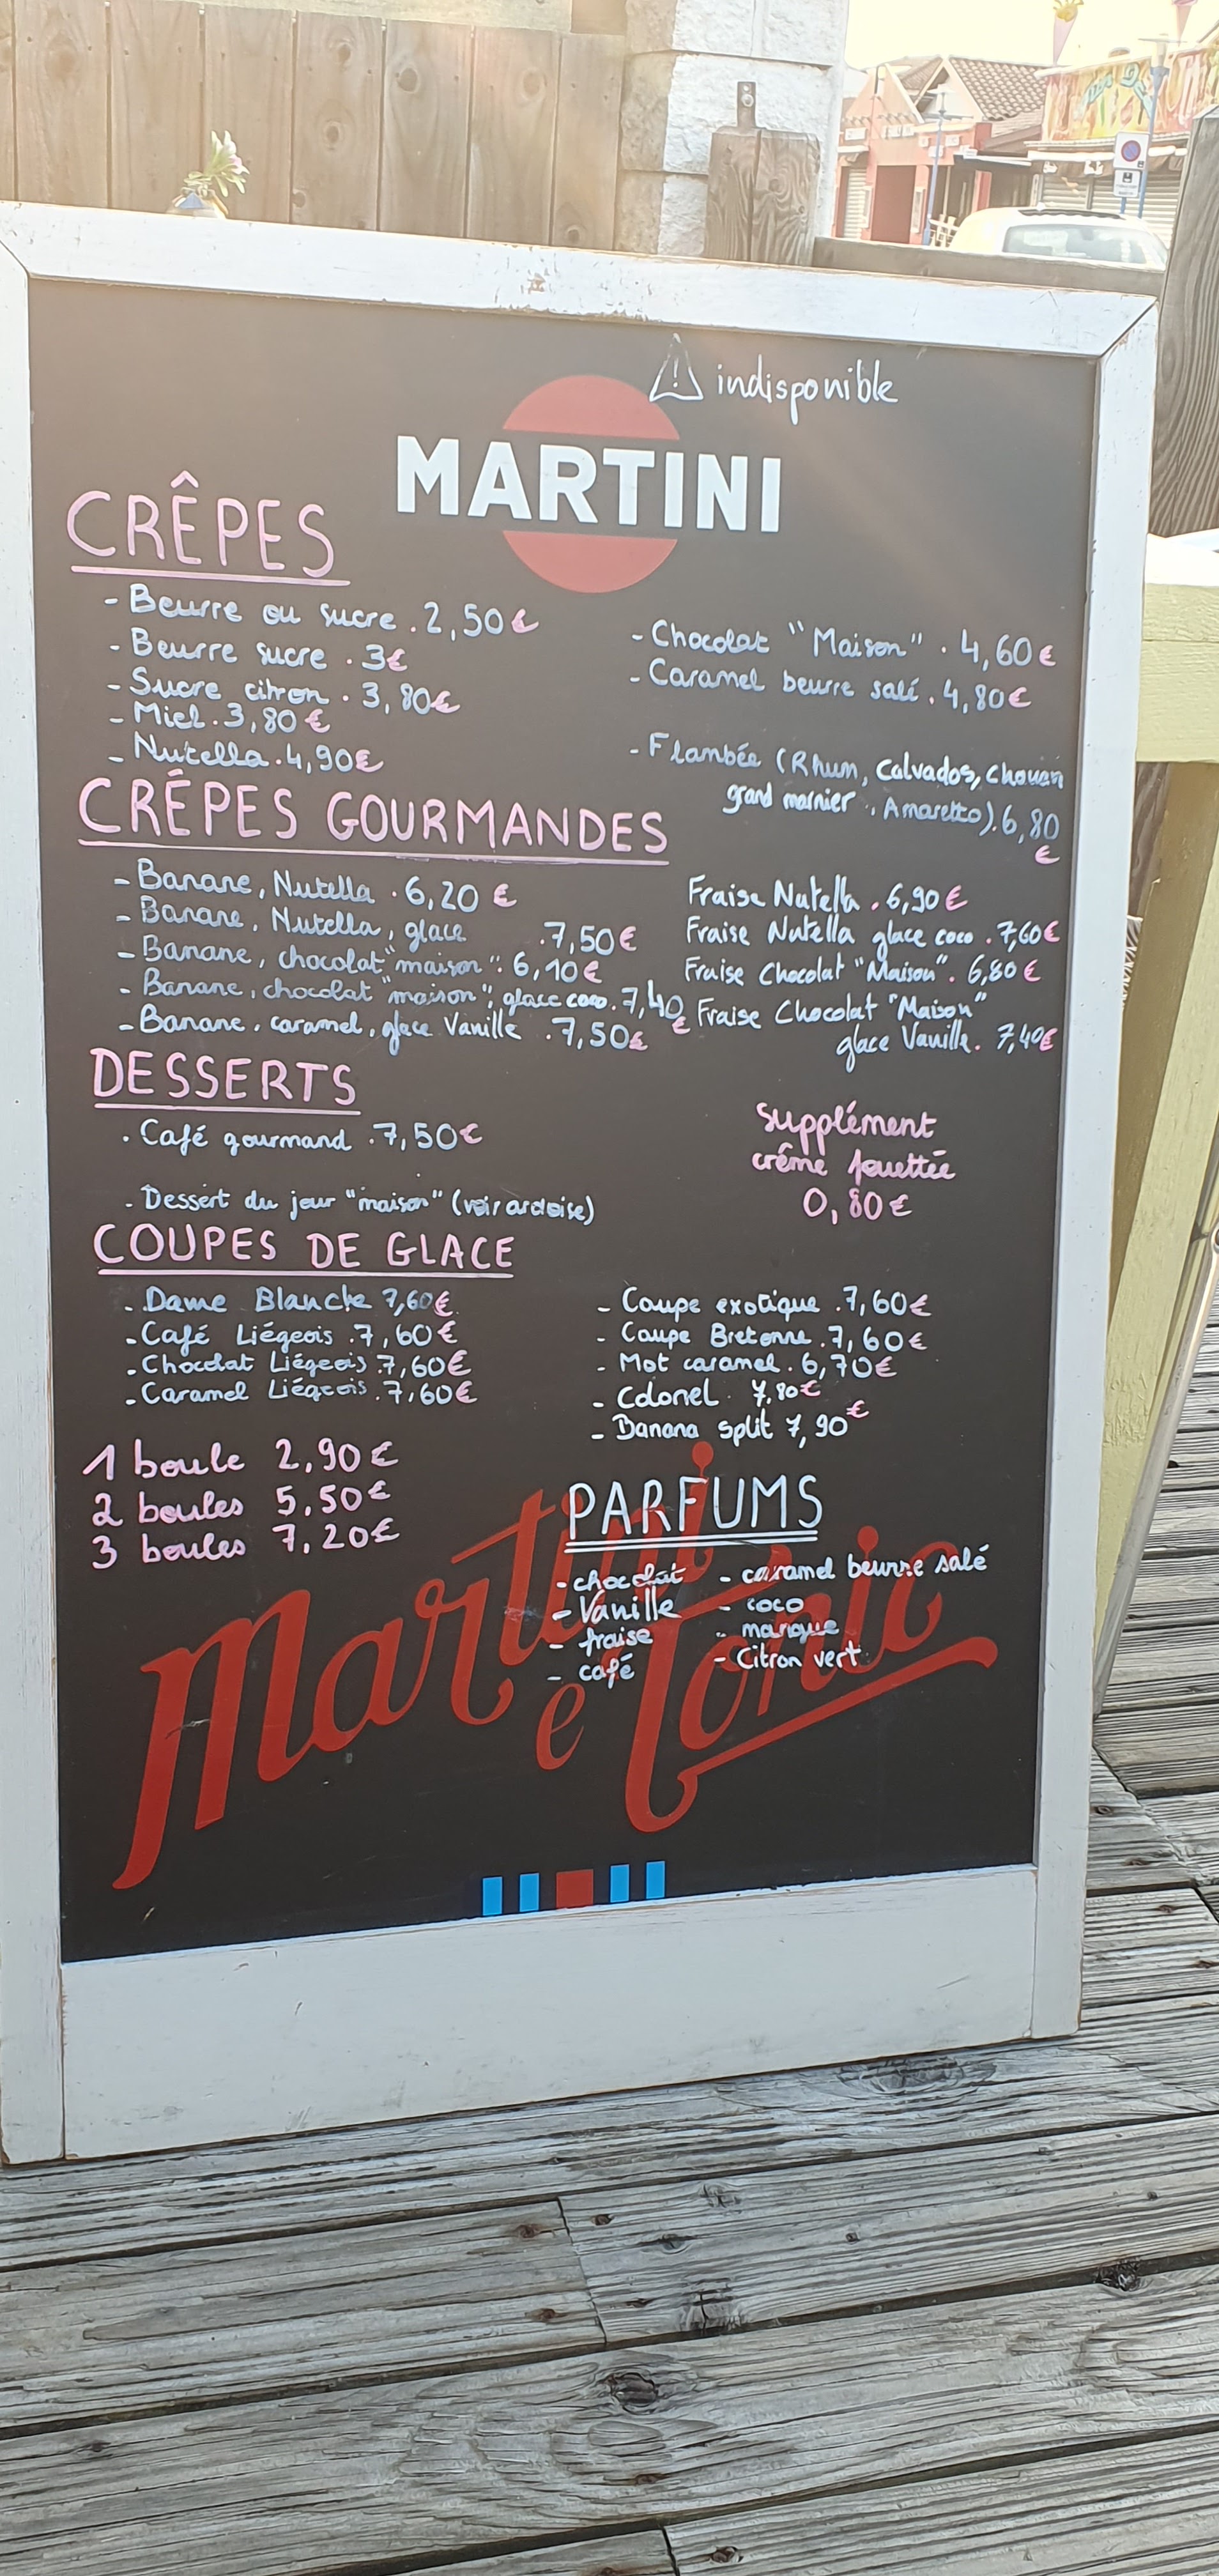 ⚠ indisponible
MARTINI
CRÊPES
- Beurre ou sucre . 2,50€
- Beurre sucre . 3€
- Sucre citron . 3,80€
- Miel . 3,80€
- Nutella . 4,90€
- Chocolat "Maison" . 4,60€
- Caramel beurre salé . 4,80€
- Flambée (Rhum, Calvados, Chouan
grand marnier, Amaretto). 6,80
€
CRÊPES GOURMANDES
- Banane, Nutella . 6,20 €
- Banane, Nutella, glace . 7,50€
- Banane, chocolat "maison" . 6,10€
- Banane, chocolat "maison", glace coco . 7,40
€
- Banane, caramel, glace Vanille . 7,50€
Fraise Nutella . 6,90€
Fraise Nutella glace coco . 7,60€
Fraise Chocolat "Maison" . 6,80€
Fraise Chocolat "Maison"
glace Vanille . 7,40€
DESSERTS
. Café gourmand . 7,50€
- Dessert du jour "maison" (voir ardoise)
Supplément
crême fouettée
0,80€
COUPES DE GLACE
- Dame Blanche 7,60€
- Café Liégeois . 7,60€
- Chocolat Liégeois . 7,60€
- Caramel Liégeois . 7,60€
- Coupe exotique . 7,60€
- Coupe Bretonne . 7,60€
- Mot caramel . 6,70€
- Colonel . 7,80€
- Banana split 7,90€
1 boule 2,90€
2 boules 5,50€
3 boules 7,20€
PARFUMS
- chocolat
- Vanille
- fraise
- café
- caramel beurre salé
- coco
- mangue
- Citron vert
Martini
e Tonic